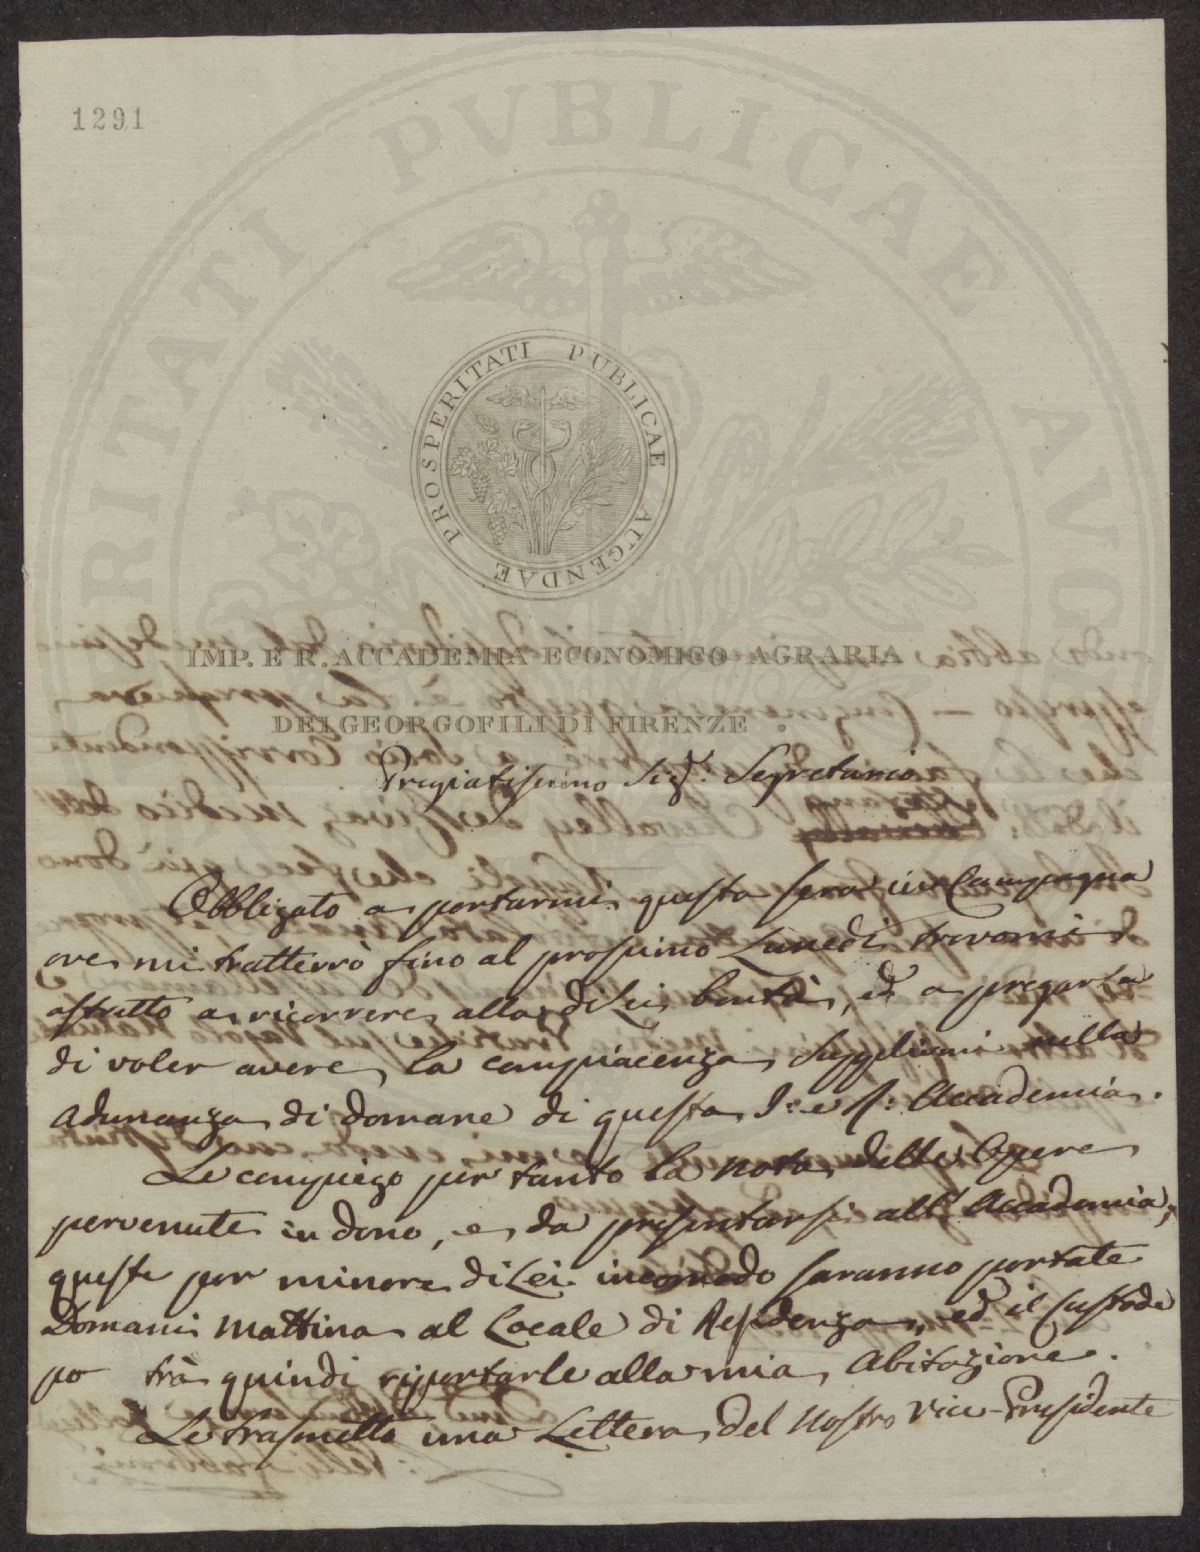 1291
PROSPERITATI PUBLICAE AUGENDAE
IMP. E R. ACCADEMIA ECONOMICO AGRARIA
DEI GEORGOFILI DI FIRENZE
Pregiatissimo Sigr. Segretario
Obbligato a portarmi questa sera in Campagna
ove mi tratterrò fino al prossimo Lunedì trovomi
astretto a ricorrere alla di Lei bontà, ed a pregarla
di voler avere la compiacenza supplirmi nella
adunanza di domane di questa I: e R: Accademia.
Le compiego per tanto la nota delle Opere
pervenute in dono, e da presentarsi all' Accademia,
queste per minore di Lei incomodo saranno portate
Domani Mattina al Locale di Residenza, ed il Custode
po trà quindi riportarle alla mia Abitazione.
Le trasmetto una Lettera del Nostro Vice-Presidente